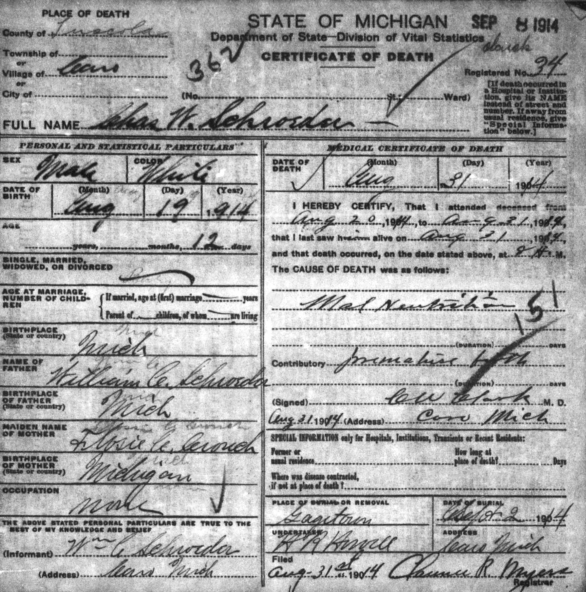 PLACE OF DEATH
STATE OF MICHIGAN SEP 8 1914
County of Tuscola
Department of State—Division of Vital Statistics
Township of
or
362
CERTIFICATE OF DEATH
Village of Caro
Registered No. 94
or
City of (No. St.; Ward)
[If death occurred in a Hospital or Institution, give its NAME instead of street and number. If away from usual residence, give "Special Information" below.]
FULL NAME Chas W. Schroeder
PERSONAL AND STATISTICAL PARTICULARS
SEX Male COLOR White
DATE OF BIRTH (Month) (Day) (Year)
Aug 19 1914
AGE
years, months, 12 days
SINGLE, MARRIED, WIDOWED, OR DIVORCED
AGE AT MARRIAGE, NUMBER OF CHILDREN
If married, age at (first) marriage years
Parent of children, of whom are living
BIRTHPLACE (State or country) Mich
NAME OF FATHER William C. Schroeder
BIRTHPLACE OF FATHER (State or country) Mich
MAIDEN NAME OF MOTHER Crouch
BIRTHPLACE OF MOTHER (State or country) Michigan
OCCUPATION None
THE ABOVE STATED PERSONAL PARTICULARS ARE TRUE TO THE BEST OF MY KNOWLEDGE AND BELIEF
(Informant) Wm C Schroeder
(Address) Caro Mich
MEDICAL CERTIFICATE OF DEATH
DATE OF DEATH (Month) (Day) (Year)
Aug 31 1914
I HEREBY CERTIFY, That I attended deceased from
Aug 20 1914, to Aug 31 1914,
that I last saw him alive on Aug 31 1914,
and that death occurred, on the date stated above, at 8 M.
The CAUSE OF DEATH was as follows:
Mal Nutrition
151
(DURATION) DAYS
Contributory premature birth
(DURATION) DAYS
(Signed) Clark M. D.
Aug 31 1914 (Address) Caro Mich
SPECIAL INFORMATION only for Hospitals, Institutions, Transients or Recent Residents:
Former or usual residence How long at place of death? Days
Where was disease contracted, if not at place of death?
PLACE OF BURIAL OR REMOVAL DATE OF BURIAL
Gagetown Sept 2 1914
UNDERTAKER ADDRESS
Caro Mich
Filed
Aug 31st 1914 Clarence R. Myers
Registrar